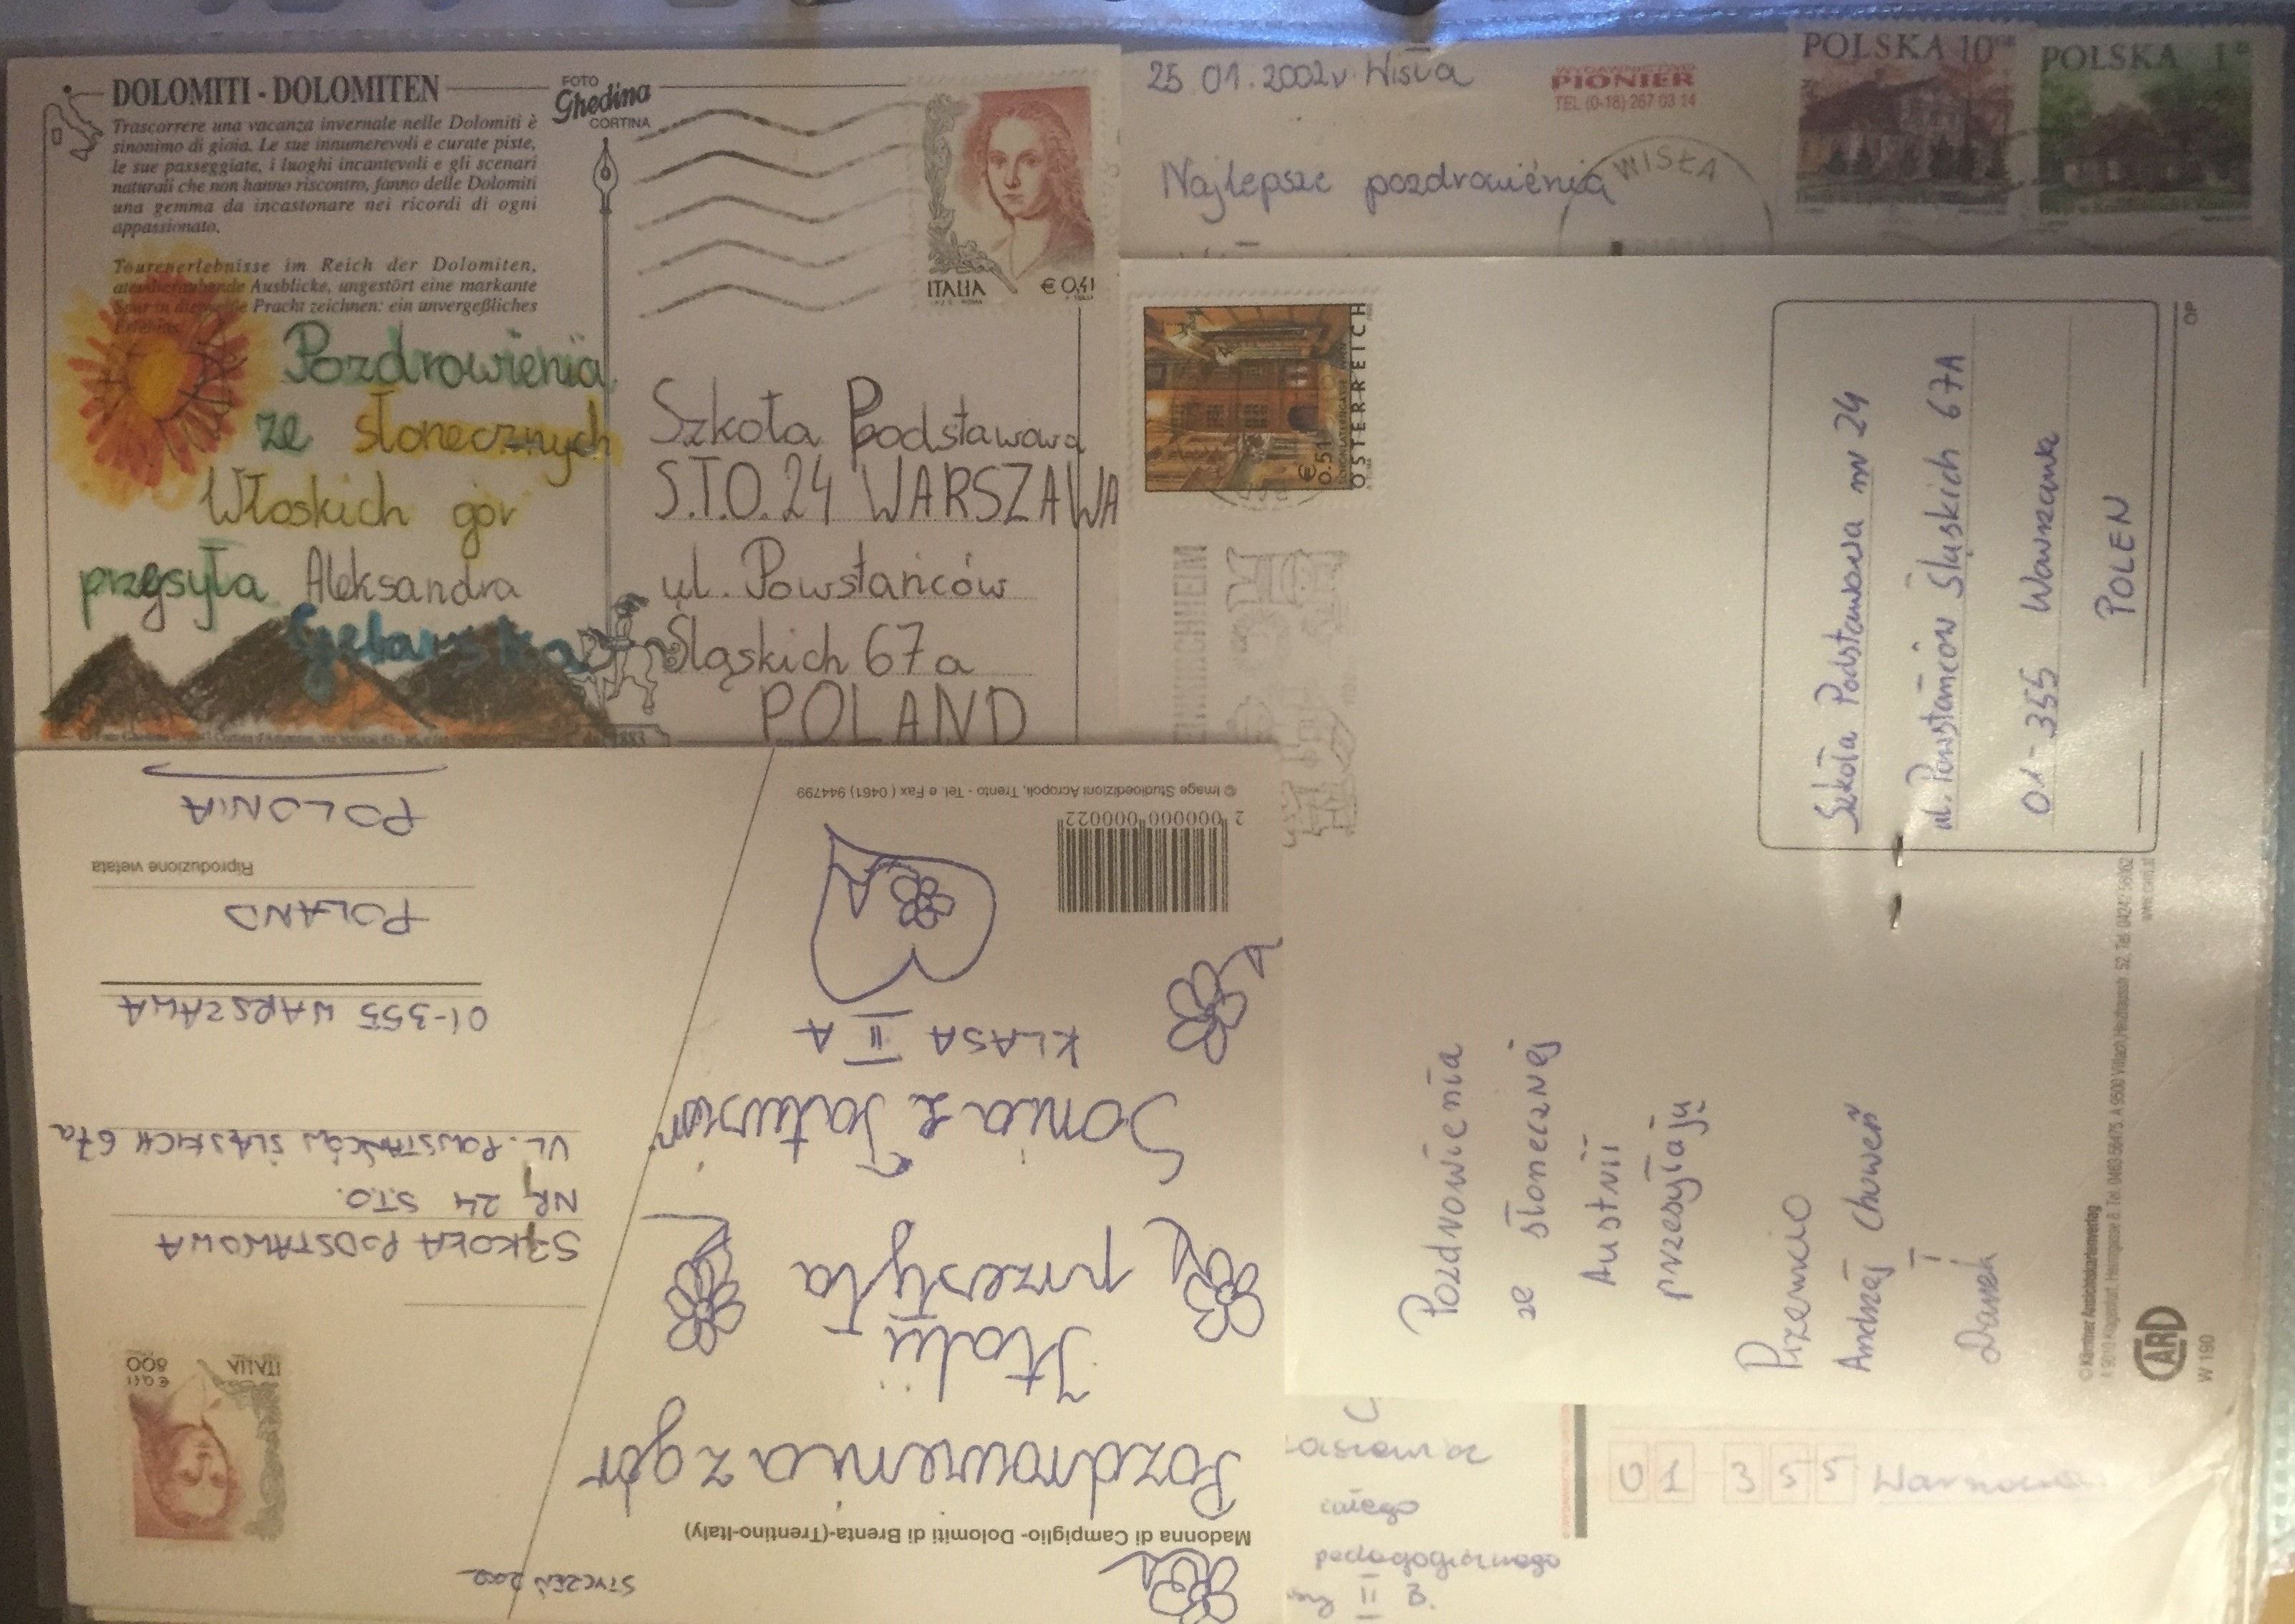 DOLOMITI - DOLOMITEN
Trascorrere una vacanza invernale nelle Dolomiti è
sinonimo di gioia. Le sue innumerevoli e curate piste,
le sue passeggiate, i luoghi incantevoli e gli scenari
naturali che non hanno riscontro, fanno delle Dolomiti
una gemma da incastonare nei ricordi di ogni
appassionato.
Tourenerlebnisse im Reich der Dolomiten,
atemberaubende Ausblicke, ungestört eine markante
Spur in die weiße Pracht zeichnen: ein unvergeßliches
Erlebnis.
FOTO
Ghedina
CORTINA
ITALIA € 0,41
Pozdrowienia
ze słonecznych
Włoskich gór
przesyła Aleksandra
Szkoła Podstawowa
S.T.O. 24 WARSZAWA
ul. Powstańców
Śląskich 67a
POLAND
25.01.2002r. Wisła
Najlepsze pozdrowienia
WYDAWNICTWO
PIONIER
TEL (0-18) 267 03 14
WISŁA
POLSKA 10
POLSKA 1
€ 0.51
ÖSTERREICH
Szkoła Podstawowa nr 24
ul. Powstańców Śląskich 67A
01-355 Warszawa
POLEN
OP
Pozdrowienia
ze słonecznej
Austrii
przesyłają
Przemcio
Andrzej Choweń
i
Darek
© Kärntner Ansichtskartenverlag
www.card.at
CARD
W 190
STYCZEŃ 2002
Madonna di Campiglio - Dolomiti di Brenta-(Trentino-Italy)
Pozdrowienia z gór
Italii
przesyła
Sonia z Tatusiem
KLASA II A
2 000000 000022
© Image Studioedizioni Acropoli, Trento - Tel. e Fax (0461) 944799
ITALIA
800
€ 0,41
SZKOŁA PODSTAWOWA
NR 24 S.T.O.
UL. POWSTAŃCÓW ŚLĄSKICH 67a
01-355 WARSZAWA
POLAND
Riproduzione vietata
POLONIA
całego
pedagogicznego
II B.
01 355 Warszawa